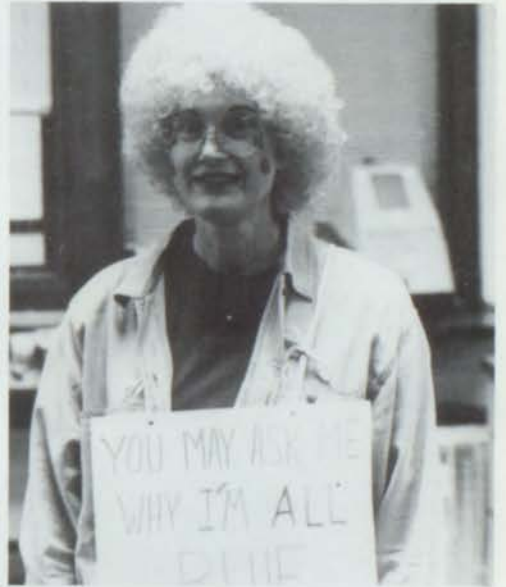 YOU MAY ASK ME
WHY I'M ALL
BLUE